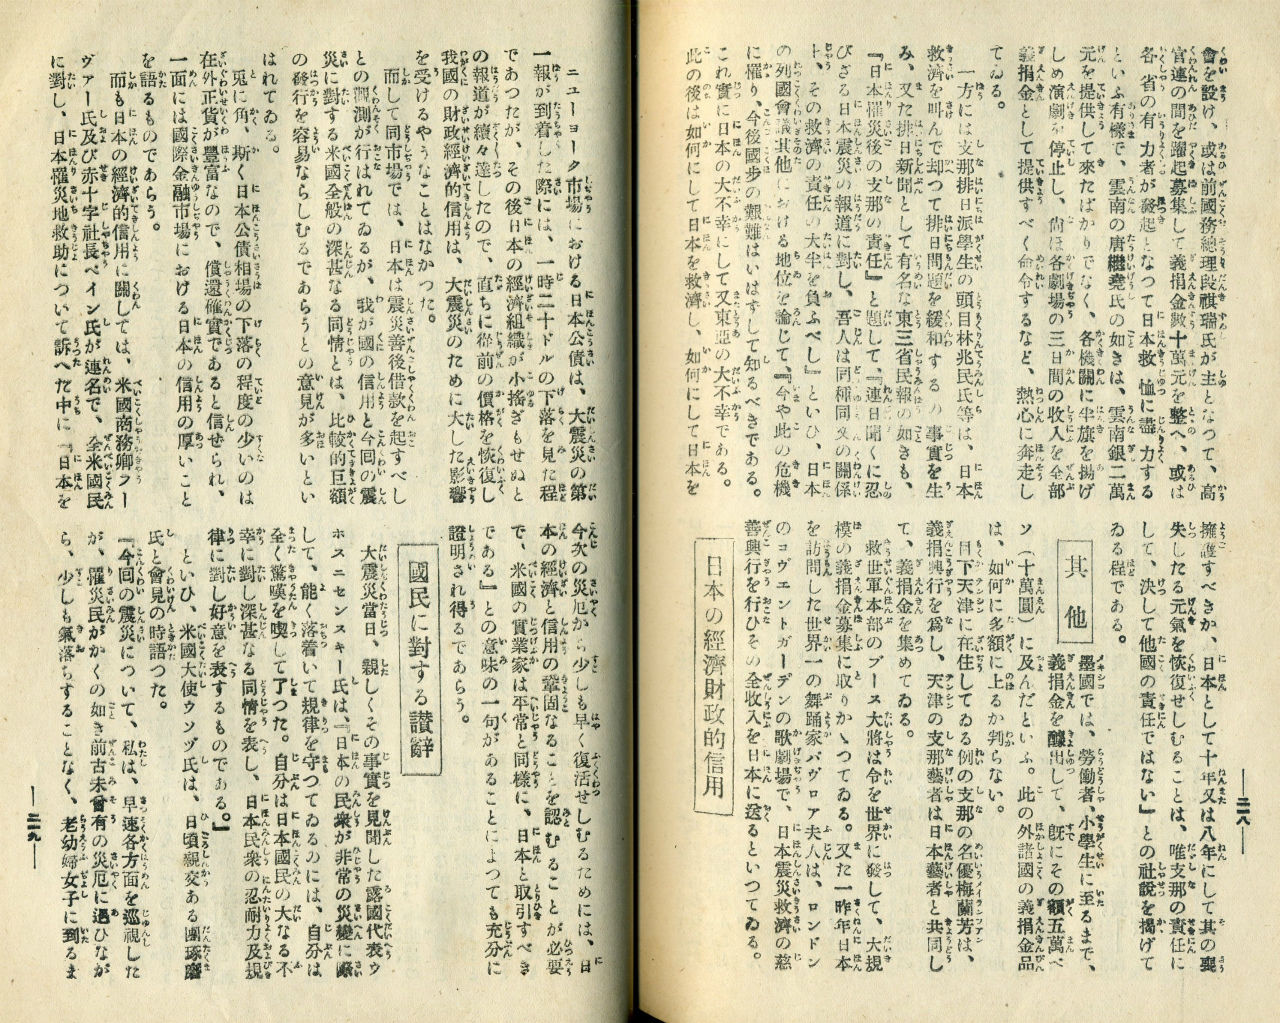 會を設け、或は前國務總理段祺瑞氏が主となつて、高
官連の間を躍起募集して義捐金數十萬元を整へ、或は
各省の有力者が發起となつて日本救恤に盡力する
といふ有樣で、雲南の唐繼堯氏の如きは、雲南銀二萬
元を提供して來たばかりでなく、各機關に半旗を揚げ
しめ演劇を停止し、尙ほ各劇場の三日間の收入を全部
義捐金として提供すべく命令するなど、熱心に奔走し
てゐる。
一方には支那排日派學生の頭目林兆民氏等は、日本
救濟を叫んで却つて排日問題を緩和するの事實を生
み、又た排日新聞として有名な東三省民報の如きも、
『日本罹災後の支那の責任』と題して、『連日聞くに忍
びざる日本震災の報道に對し、吾人は同種同文の關係
上、その救濟の責任の大半を負ふべし』といひ、日本
の列國會議其他における地位を論じて、『今や此の危機
に罹り、今後國步の艱難はいはずして知るべきである。
これ實に日本の大不幸にして又東亞の大不幸である。
此の後は如何にして日本を救濟し、如何にして日本を
擁護すべきか、日本として十年又は八年にして其の喪
失したる元氣を恢復せしむることは、唯支那の責任に
して、決して他國の責任ではない』との社說を揭げて
ゐる程である。
其他
墨國では、勞働者、小學生に至るまで、
義捐金を醵出して、旣にその額五萬ペ
ソ(十萬圓)に及んだといふ。此の外諸國の義捐金品
は、如何に多額に上るか判らない。
目下天津に在住してゐる例の支那の名優梅蘭芳は、
義捐興行を爲し、天津の支那藝者は日本藝者と共同し
て、義捐金を集めてゐる。
救世軍本部のブース大將は令を世界に發して、大規
模の義捐金募集に取りかゝつてゐる。又た一昨年日本
を訪問した世界一の舞踊家パヴロア夫人は、ロンドン
のコヴエントガーデンの歌劇場で、日本震災救濟の慈
善興行を行ひその全收入を日本に送るといつてゐる。
日本の經濟財政的信用
—二一八—
ニューヨーク市場における日本公債は、大震災の第
一報が到着した際には、一時二十ドルの下落を見た程
であつたが、その後日本の經濟組織が小搖ぎもせぬと
の報道が續々達したので、直ちに從前の價格を恢復し
我國の財政經濟的信用は、大震災のために大した影響
を受けるやうなことはなかつた。
而して同市場では、日本は震災善後借款を起すべし
との觀測が行はれてゐるが、我が國の信用と今回の震
災に對する米國全般の深甚なる同情とは、比較的巨額
の發行を容易ならしむるであらうとの意見が多いとい
はれてゐる。
兎に角、斯く日本公債相場の下落の程度の少いのは
在外正貨が豐富なので、償還確實であると信せられ、
一面には國際金融市場における日本の信用の厚いこと
を語るものであらう。
而も日本の經濟的信用に關しては、米國商務卿フー
ヴァー氏及び赤十字社長ペイン氏が連名で、全米國民
に對し、日本罹災地救助について訴へた中に『日本を
今次の災厄から少しも早く復活せしむるためには、日
本の經濟と信用の鞏固なることを認むることが必要
で、米國の實業家は平常と同樣に、日本と取引すべき
である』との意味の一句があることによつても充分に
證明され得るであらう。
國民に對する讃辭
大震災當日、親しくその事實を見聞した露國代表ウ
ホスニセンスキー氏は、『日本の民衆が非常の災變に際
して、能く落着いて規律を守つてゐるのには、自分は
全く驚嘆を喫して了つた。自分は日本國民の大なる不
幸に對し深甚なる同情を表し、日本民衆の忍耐力及規
律に對し好意を表するものである。』
といひ、米國大使ウンヅ氏は、日頃親交ある團琢磨
氏と會見の時語つた。
『今回の震災について、私は、早速各方面を巡視した
が、罹災民がかくの如き前古未曾有の災厄に遇ひなが
ら、少しも氣落ちすることなく、老幼婦女子に到るま
—二一九—